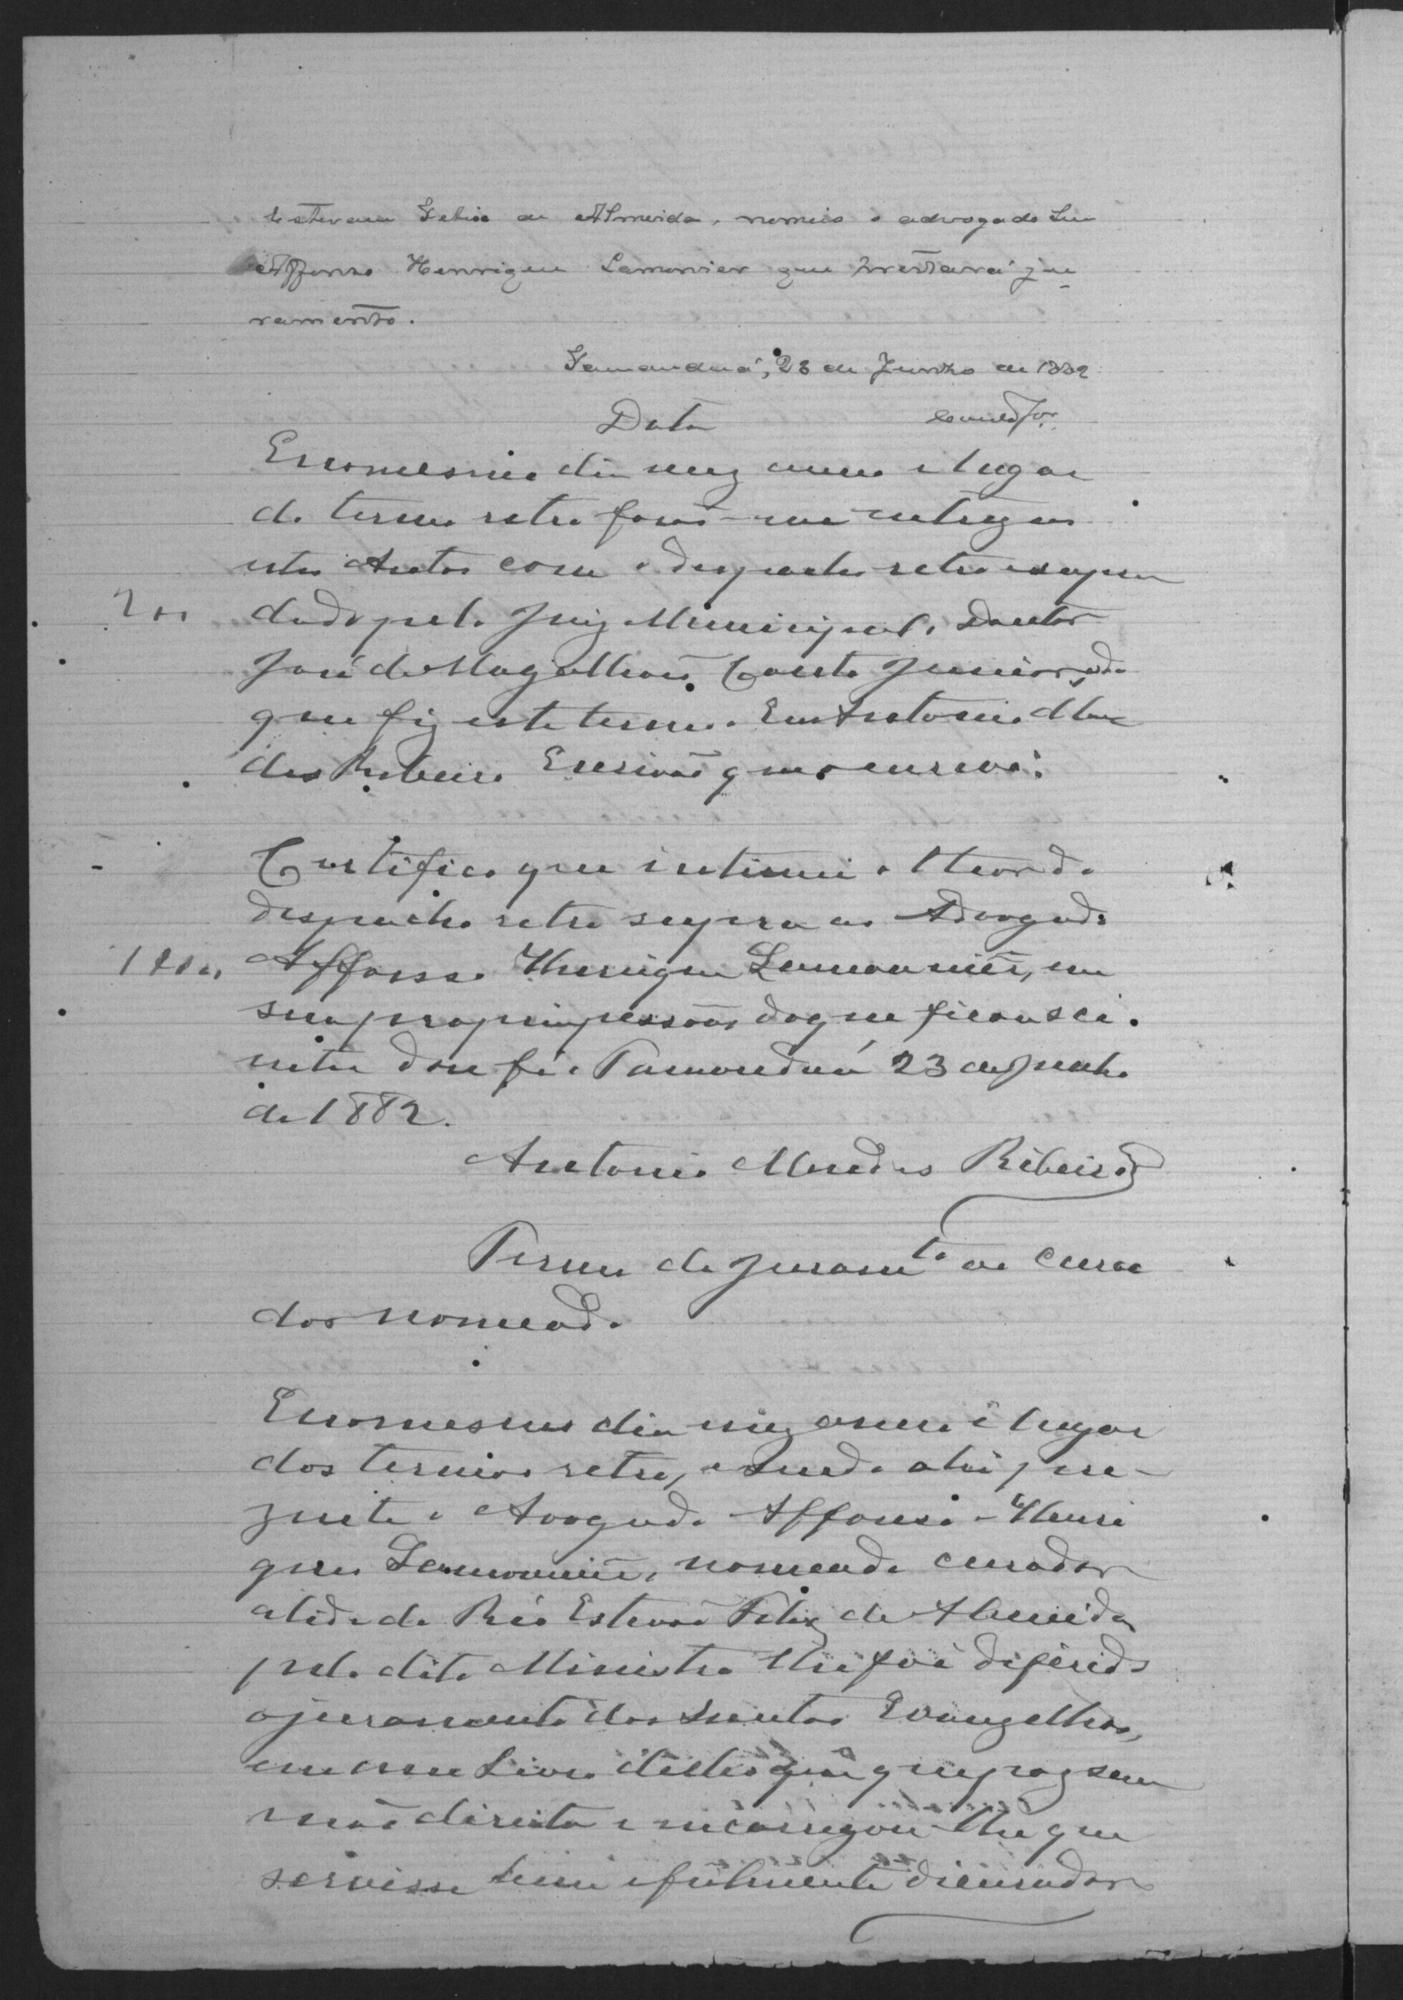 Estevam Felix de Almeida, nomeio o advogado
Affonso Henrique Lamonier que prestará ju-
ramento.
Tamanduá, 23 de Junho de 1882
Data
Em o mesmo dia mez anno e lugar
do termo retro forão-me entregues
estes Autos com o despacho retro e supra
200
dado pelo Juiz Municipal, Doutor
José de Magalhães Couto Junior, do
que fiz este termo. Eu Antonio Men
des Ribeiro Escrivão que o escrevi.
Certifico que intimei o theor do
despacho retro supra ao Advogado
1000
Affonso Henrique Lamounier, em
sua propria pessoa, do que ficou sci.
ente dou fé. Tamanduá 23 de Junho
de 1882.
Antonio Mendes Ribeiro
Termo de Juramto ao cura
dor nomeado
Em o mesmo dia mez anno e lugar
dos termos retro, e sendo ahi pre-
zente o Avogado Affonso Henri
ques Lamounier, nomeado curador
a lide do Réo Estevão Felix de Almeida
pelo dito Ministro lhe foi diferido
o juramento dos Santos Evangelhos,
em um Livro delles em que poz sua
mão direita e incarregou-lhe que
servisse bem e fielmente de curador